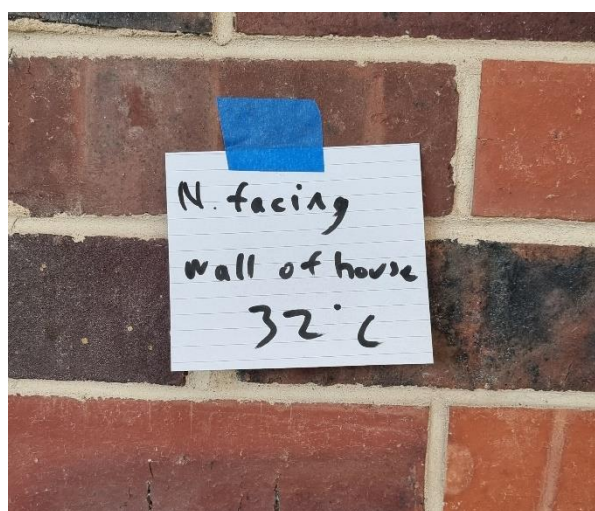 N. facing
wall of house
32°C